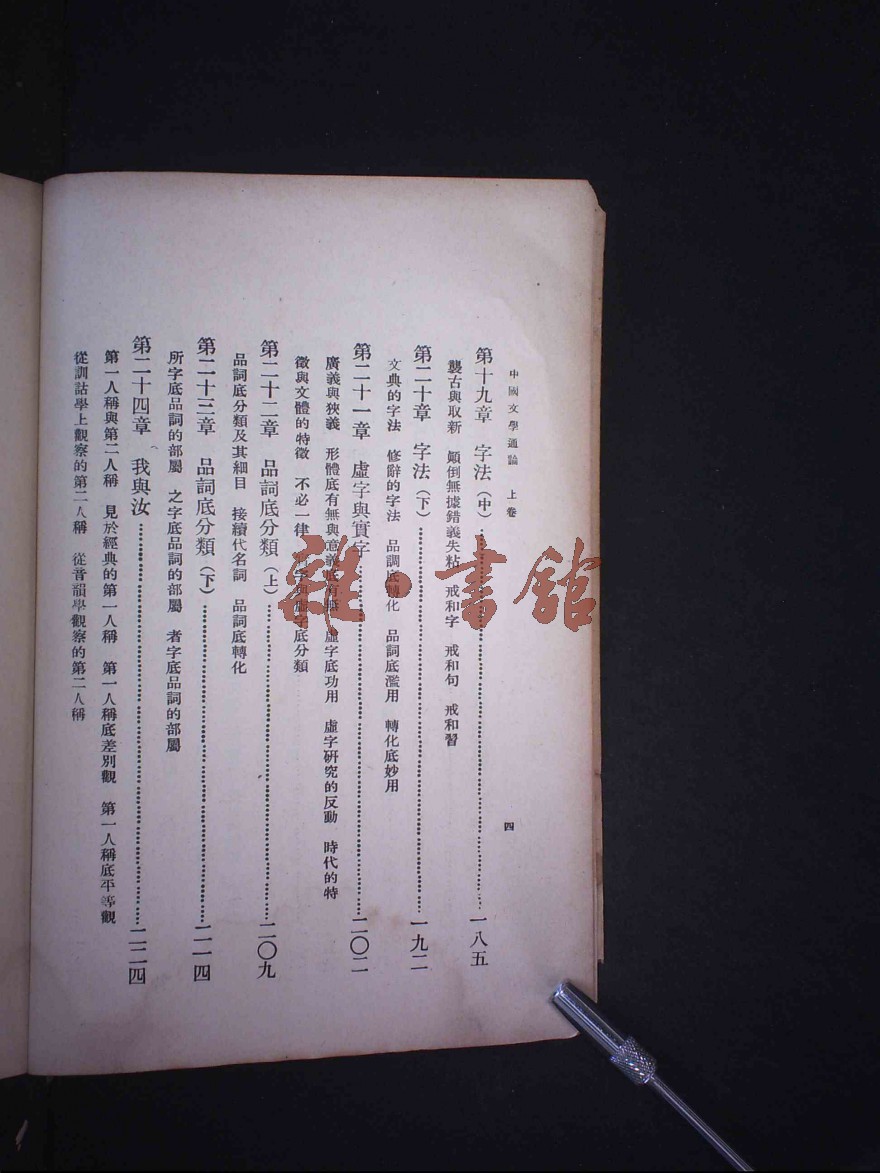 中國文學通論　上卷
四
第十九章　字法（中）……一八五
襲古與取新　顚倒無據錯義失粘　戒和字　戒和句　戒和習
第二十章　字法（下）……一九二
文典的字法　修辭的字法　品調底轉化　品詞底濫用　轉化底妙用
第二十一章　虛字與實字……二〇二
廣義與狹義　形體底有無與意義底有無　虛字底功用　虛字硏究的反動　時代的特
徵與文體的特徵　不必一律　字與虛字底分類
第二十二章　品詞底分類（上）……二〇九
品詞底分類及其細目　接續代名詞　品詞底轉化
第二十三章　品詞底分類（下）……二一四
所字底品詞的部屬　之字底品詞的部屬　者字底品詞的部屬
第二十四章　我與汝……二二四
第一人稱與第二人稱　見於經典的第一人稱　第一人稱底差別觀　第一人稱底平等觀
從訓詁學上觀察的第二人稱　從音韻學觀察的第二人稱
雜·書館